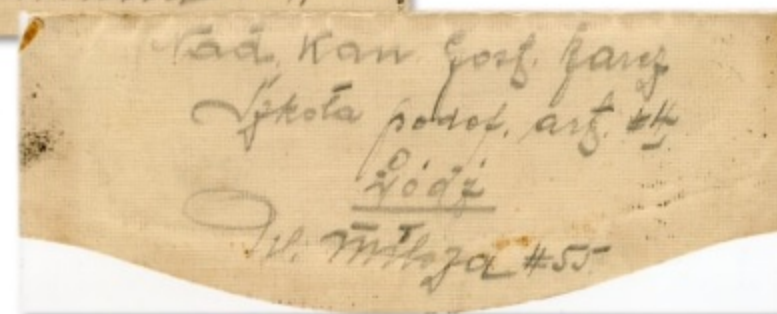 Nad. Kan. Gosf. Jarej
Szkoła podof. art. #4
Łódź
Ul. Miłsza #55